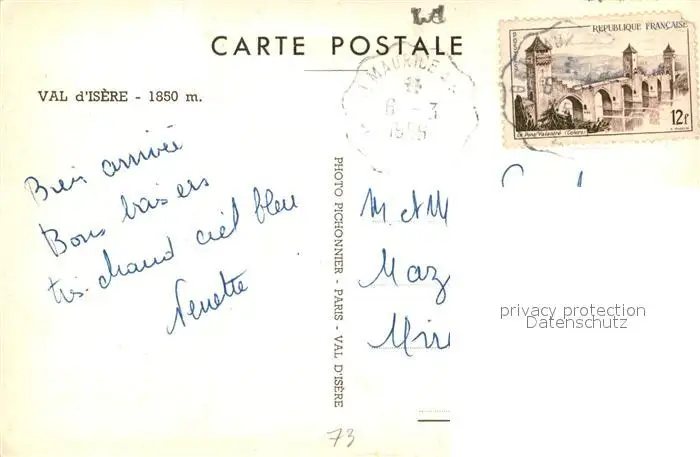 CARTE POSTALE
REPUBLIQUE FRANÇAISE
POSTES
12F
Le Pont Valentré (Cahors)
MAURICE
6 - 3
1956
VAL d'ISÈRE - 1850 m.
Bien arrivée
Bons baisers
très chaud ciel bleu
Nenette
PHOTO PICHONNIER - PARIS - VAL D'ISÈRE
M. et M
Maz
Mir
privacy protection
Datenschutz
73